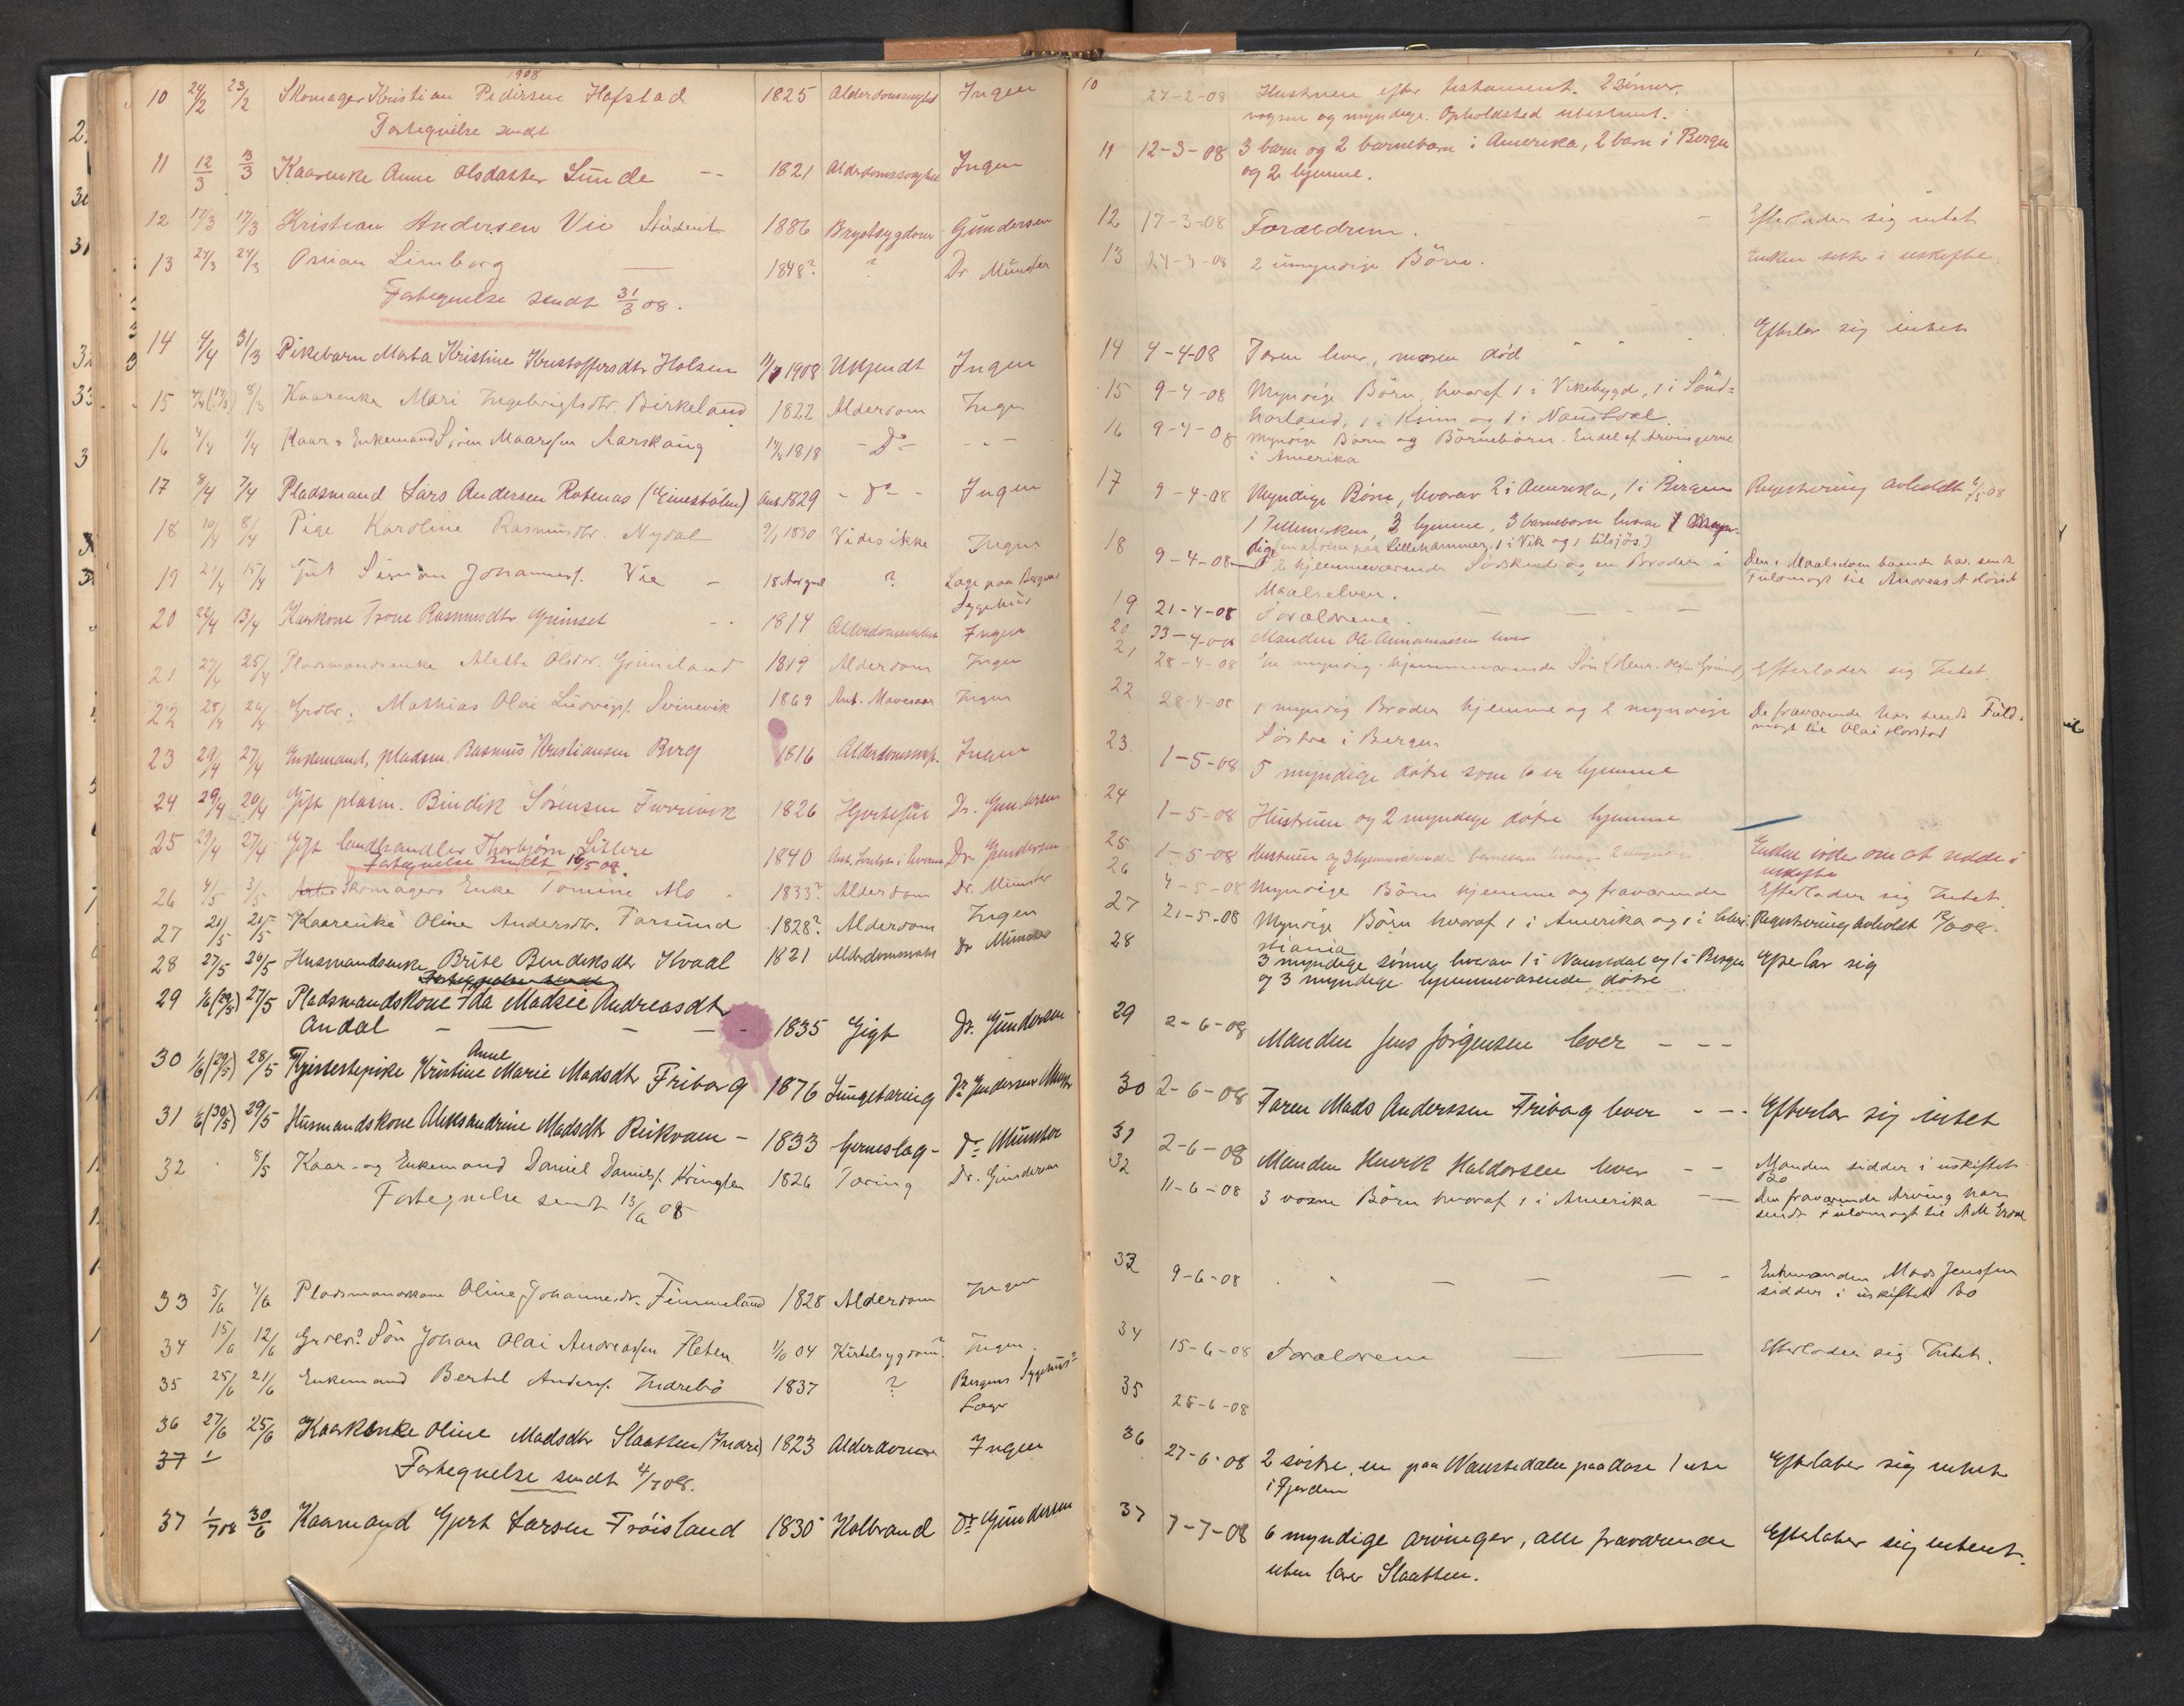 1908
10 24/2 23/2 Skomager Kristian Pedersen Hofstad 1825 Alderdomssvaghed Ingen
Fortegnelse sendt
11 12/3 3/3 Kaarenke Anne Olsdatter Sunde -- 1821 Alderdomssvaghed Ingen
12 17/3 17/3 Kristian Andersen Vie Student 1886 Brystsygdom Gundersen
13 24/3 24/3 Limborg 1848? ? Dr. Münster
Fortegnelse sendt 31/3 08.
14 4/4 31/3 Pikebarn Marta Kristine Kristoffersdtr Holsen 1908 Ukjendt Ingen
15 8/3 Kaarenke Mari Ingebrigtsdtr. Birkeland 1822 Alderdom Ingen
16 4/4 1/4 Kaar & Enkemand Sören Maarssen Aarskaug 1818 - Do - - " -
17 8/4 7/4 Pladsmand Lars Andersen Rotenæs Ant. 1829 - do - Ingen
18 10/4 8/4 Pige Karoline Rasmusdtr. Nydal 9/1 1830 Vides ikke Ingen
19 21/4 15/4 Gut Simon Johanness. Vie - 18 Aar gml ? Læge paa Bergens
Sygehus
20 22/4 13/4 Kaarkone Trone Rasmusdtr Grimset 1814 Ingen
21 27/4 25/4 Pladsmandsenke Alethe Olsdtr. Grimeland 1819 Alderdom Ingen
22 28/4 26/4 Grdbr. Mathias Olai Ludvigs. Svinevik 1869 Ant. Mavesaar Ingen
23 29/4 27/4 Enkemand, pladsm. Rasmus Kristiansen Berg 1816 Alderdomssvagh. Ingen
24 29/4 20/4 Gift pladsm. Bendik Sørensen Furevik 1826 Hjertefeil Dr. Gundersen
25 29/4 27/4 Gift landhandler Thorbjørn Littere 1840 Dr. Gundersen
Fortegnelse sendt 16/5 08.
26 4/5 3/5 Skomagers Enke Tomine Mo - 1833? Alderdom Dr. Münster
27 21/5 21/5 Kaarenke Oline Andersdtr. Farsund 1828? Alderdom Ingen
28 27/5 26/5 Husmandsenke Brite Bendiksdtr Kvaal 1821 Dr Münster
Fortegnelse sendt
29 1/6 (29/5) 27/5 Pladsmandskone Ida Madsie Andreasdtr
Andal - — - - - 1835 Gigt Dr. Gundersen
Anne
30 1/6 (29/5) 28/5 Tjenestepike Kristine Marie Madsdtr Friborg 1876 Lungetæring Dr. Gundersen Münster
31 1/6 (30/5) 29/5 Husmandskone Aleksandrine Madsdtr Reikvam - 1833 hjerneslag - Dr. Münster
32 8/5 Kaar- og Enkemand Daniel Daniels. Kringlen 1826 Tæring Dr. Gundersen
Fortegnelse sendt 13/6 08
33 5/6 4/6 Pladsmandskone Oline Johannesdtr. Fimmeland 1828 Alderdom Ingen
34 15/6 12/6 Grdbr. Sön Johan Olai Andreassen Fleten 1/6 04 Kirtelsygdom? Ingen.
35 25/6 21/6 Enkemand Bertel Anders. Indrebö 1837 ? Bergens Sygehus?
Læge
36 27/6 25/6 Kaarkenke Oline Madsdtr Slaatten (Indre) 1823 Alderdom Ingen
37 1/
Fortegnelse sendt 4/7 08.
37 1/7 08 30/6 Kaarmand Gjert Larsen Trøisland 1830 Kolbrand Dr. Gundersen
10 27-2-08 Hustruen efter testament. 2 sönner,
voxne og myndige. Opholdsted ubestemt.
11 12-3-08 3 barn og 2 barnebarn i Amerika, 2 barn i Bergen
og 2 hjemme.
12 17-3-08 Forældrene. - Efterlader sig intet
13 24-3-08 2 umyndige Børn. Enken sitter i uskiftet
Efterlar sig intet
14 4-4-08 Faren lever, moren död " " "
15 9-4-08 Myndige Börn, hvoraf 1 i Vikebygd, 1 i Sönd-
horland, 1 i Kinn og 1 i Naustdal.
16 9-4-08 Myndige Börn og Börnebörn. En del af Arvingerne
i Amerika
17 9-4-08 Myndige Børn, hvorav 2 i Amerika, 1 i Bergen Registrering avholdt 6/5 08
1 Tellemarken, 3 hjemme, 3 barnebarn hvorav 1 Myn-
dig (en opholder paa Lillehammer, 1 i Vik og 1 tilsjøs.)
18 9-4-08 hjemmeværende Södskend og en Broder i Den i Maalsdom boende har sendt
Maalselven. Fuldmagt til Andreas
19 21-4-08 Forældrene. — — —
20 23-4-08 Manden Ole lever
21 28-4-08 En myndig hjemmeværende Sön Efterlader sig Intet.
22 28-4-08 1 myndig Broder hjemme og 2 myndige De fraværende har sendt Fuld-
Söstre i Bergen magt til Olai Horstad
23 1-5-08 5 myndige døtre som er hjemme
24 1-5-08 Hustruen og 2 myndige døtre hjemme
25 1-5-08 Hustruen og 3 hjemmeværende Enken ønsker om at sidde i
uskiftet
26 4-5-08 Myndige Börn hjemme og fraværende Efterlader sig Intet.
27 21-5-08 Myndige Börn hvoraf 1 i Amerika og 1 i Chri- Registrering avholdt 12/6 08.
stiania
28 3 myndige sönner hvorav 1 i Naustdal og 1 i Bergen Efterlar sig
og 3 myndige hjemmeværende døtre
29 2-6-08 Manden Jens Jörgensen lever - - -
30 2-6-08 Faren Mads Anderssen Friborg lever - - - Efterlar sig intet
31 2-6-08 Manden Henrik Haldorsen lever - - Manden sidder i uskiftet
Bo
32 11-6-08 3 voxne Börn hvoraf 1 i Amerika - — Den fraværende Arving har
sendt Fuldmagt til A M
33 9-6-08 . " — — — - Enkemanden Mads Jenssen
sidder i uskiftet Bo
34 15-6-08 Forældrene — — Efterlader sig Intet.
35 25-6-08
36 27-6-08 2 søstre, en paa Naustedalen paa Aase 1 ute Efterlater sig intet
i Fjorden
37 7-7-08 6 myndige arvinger, alle fraværende Efterlater sig intent.
uten Slaatten.